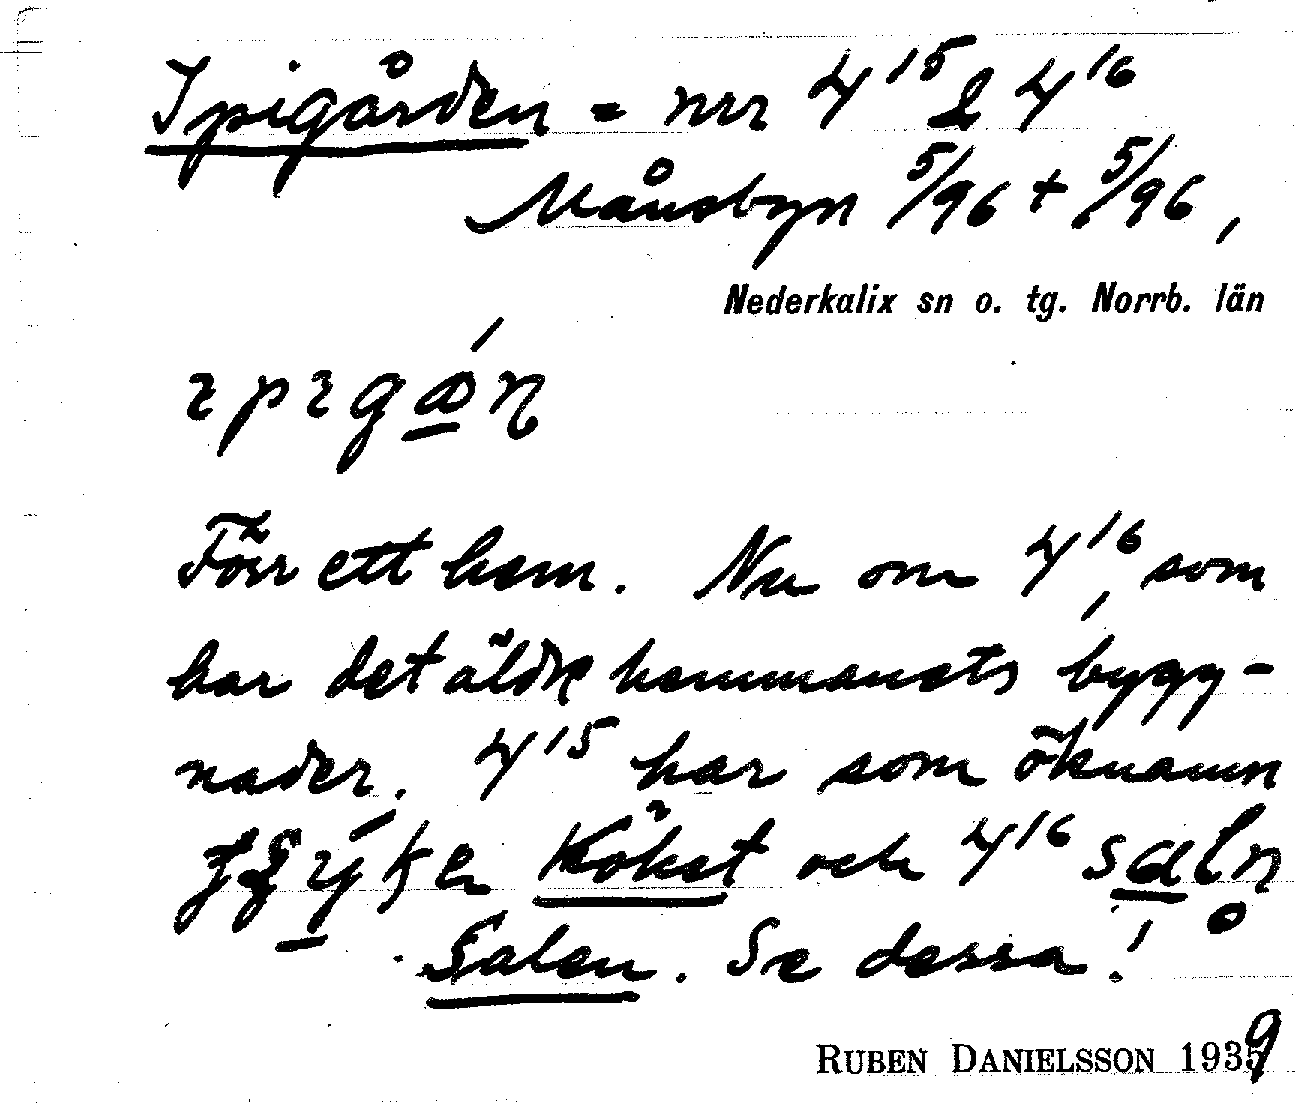 Ipigården = nrr 4¹⁵ & 4¹⁶
Månsbyn 5/96 + 5/96,
Nederkalix sn o. tg. Norrb. län
Förr ett hem. Nu om 4¹⁶, som
har det äldre hemmanets bygg-
nader. 4¹⁵ har som öknamn
Köket och 4¹⁶ saln̥
Salen. Se dessa!
RUBEN DANIELSSON 1939